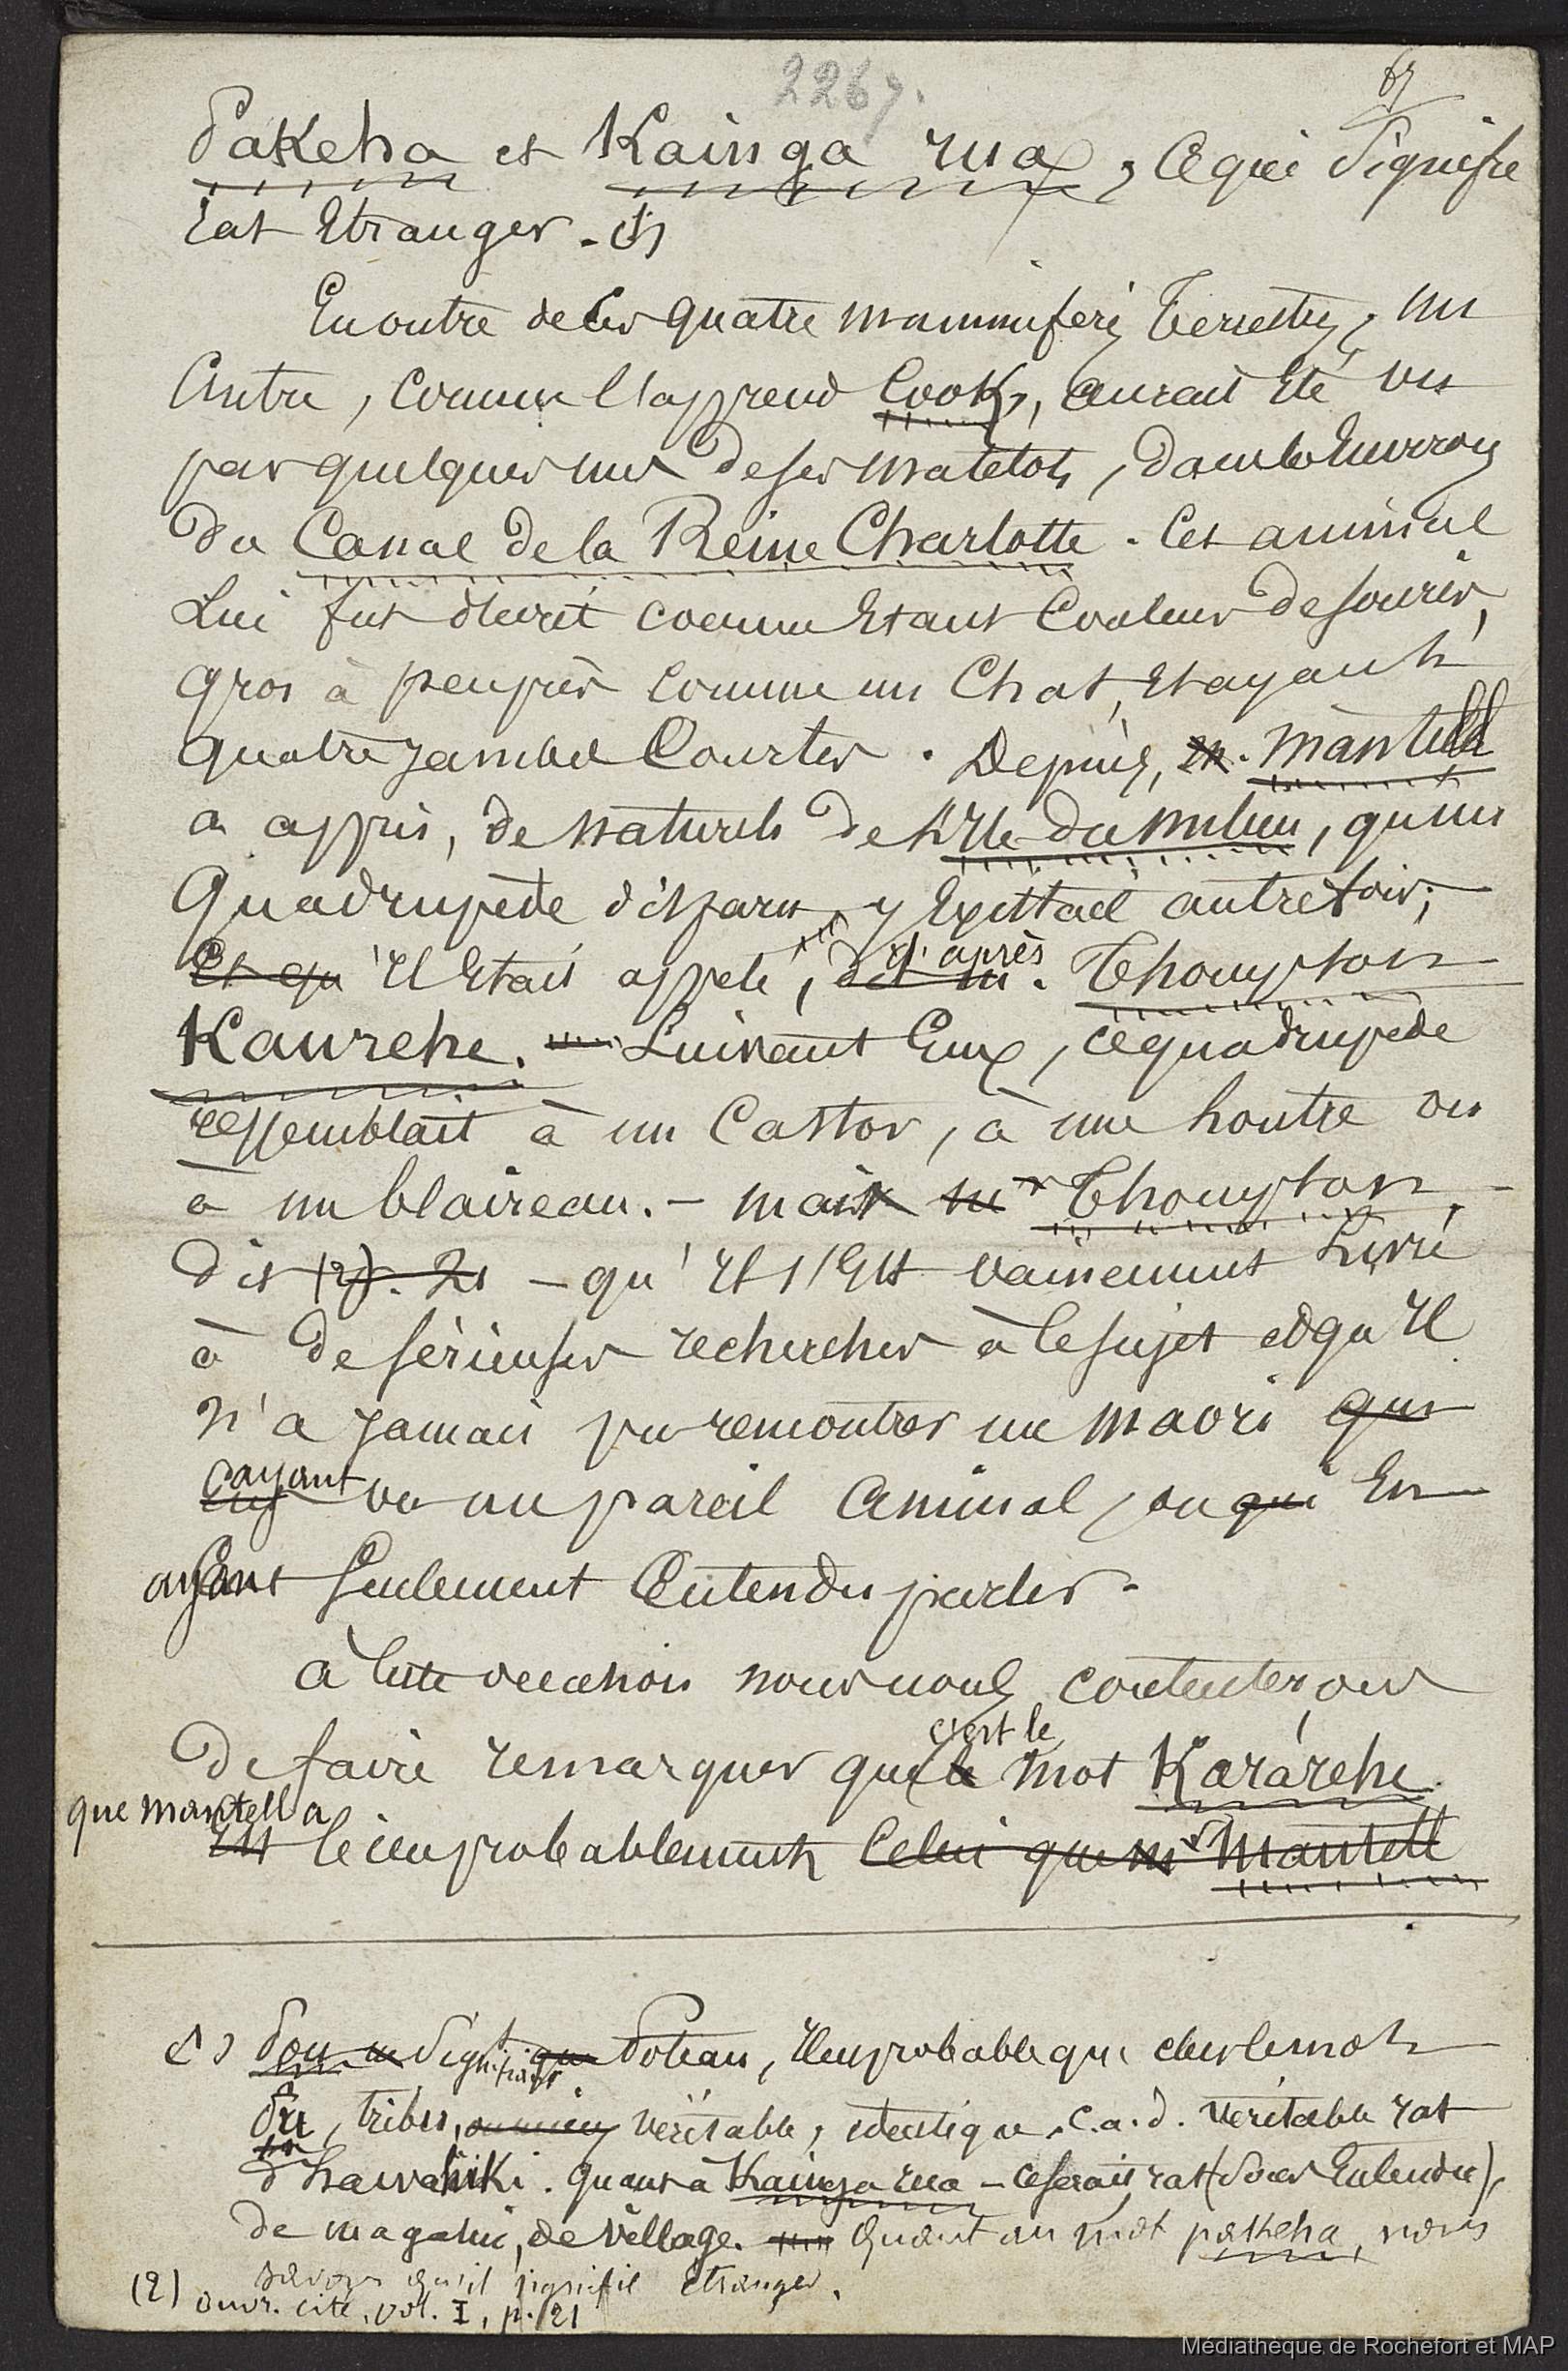 2267.
67
Pakeha et Kainga rua, ce qui signifie
rat Etranger. (1)
En outre de ces quatre mammiferes terrestres, un
autre, comme l'apprend Cook, aurait été vu
par quelques uns de ses matelots, dans les Environs
du Canal de la Reine Charlotte. Cet animal
Lui fut décrit comme Etant Couleur de souris,
gros à peu près comme un Chat, et ayant
quatre jambes Courtes. Depuis, M. Mantell
a appris, de naturels de l'Ile du milieu, qu'un
Quadrupède disparu y Existait autrefois;
Et qu'il Etait appelé, dit M. d'après Thompson
Kaurehe. Suivant Eux, ce quadrupède
ressemblait à un Castor, à une loutre ou
à un blaireau. - mais Mr Thompson,
dit (2) p. 21 - qu'il s'Est vainement Livré
à de sérieuses recherches à ce sujet et qu'il
n'a jamais pu rencontrer un maori qui
ayant vu un pareil animal, ou qui En
ayant seulement Entendu parler.
à cette occasion nous nous contenterons
de faire remarquer que c'est le mot Kararehe
que Mantell a
Est bien probablement Celui que Mr Mantell
(1) Pou signifiant Poteau, il est probable que c'est le mot
Pu, tribu, véritable, identique, c.a.d. véritable rat
d'hawahiki. Quant à Kainga rua - ce serait rat (sous Entendu),
de magasin, de village. Quant au mot pakeha, nous
savons qu'il signifie Etranger.
(2) ouvr. cité, vol. I, p. 21
Médiathèque de Rochefort et MAP